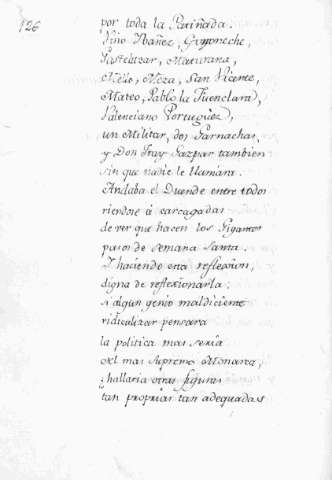 126
por toda la Pariñada.
Vino Ybañez, Goyoneche,
Pasteluzar, Maturana,
Melo, Meza, San Vicente,
Mateo, Pablo la Fuenclara,
Valenciano Portuguez,
un Militar, dos Garnachas
y Don Fray Gazpar tambien
sin que nadie le llamára.
Andaba el Duende entre todos
riendose á carcagadas
de ver que hacen los Gigantes
pasos de semana Santa.
Y haciendo esta reflexion,
digna de reflexionarla:
si algun genio maldiciente
ridiculizar pensara
la politica mas seria
del mas supremo Monarca,
¿hallaria otras figuras
tan propias tan adequadas